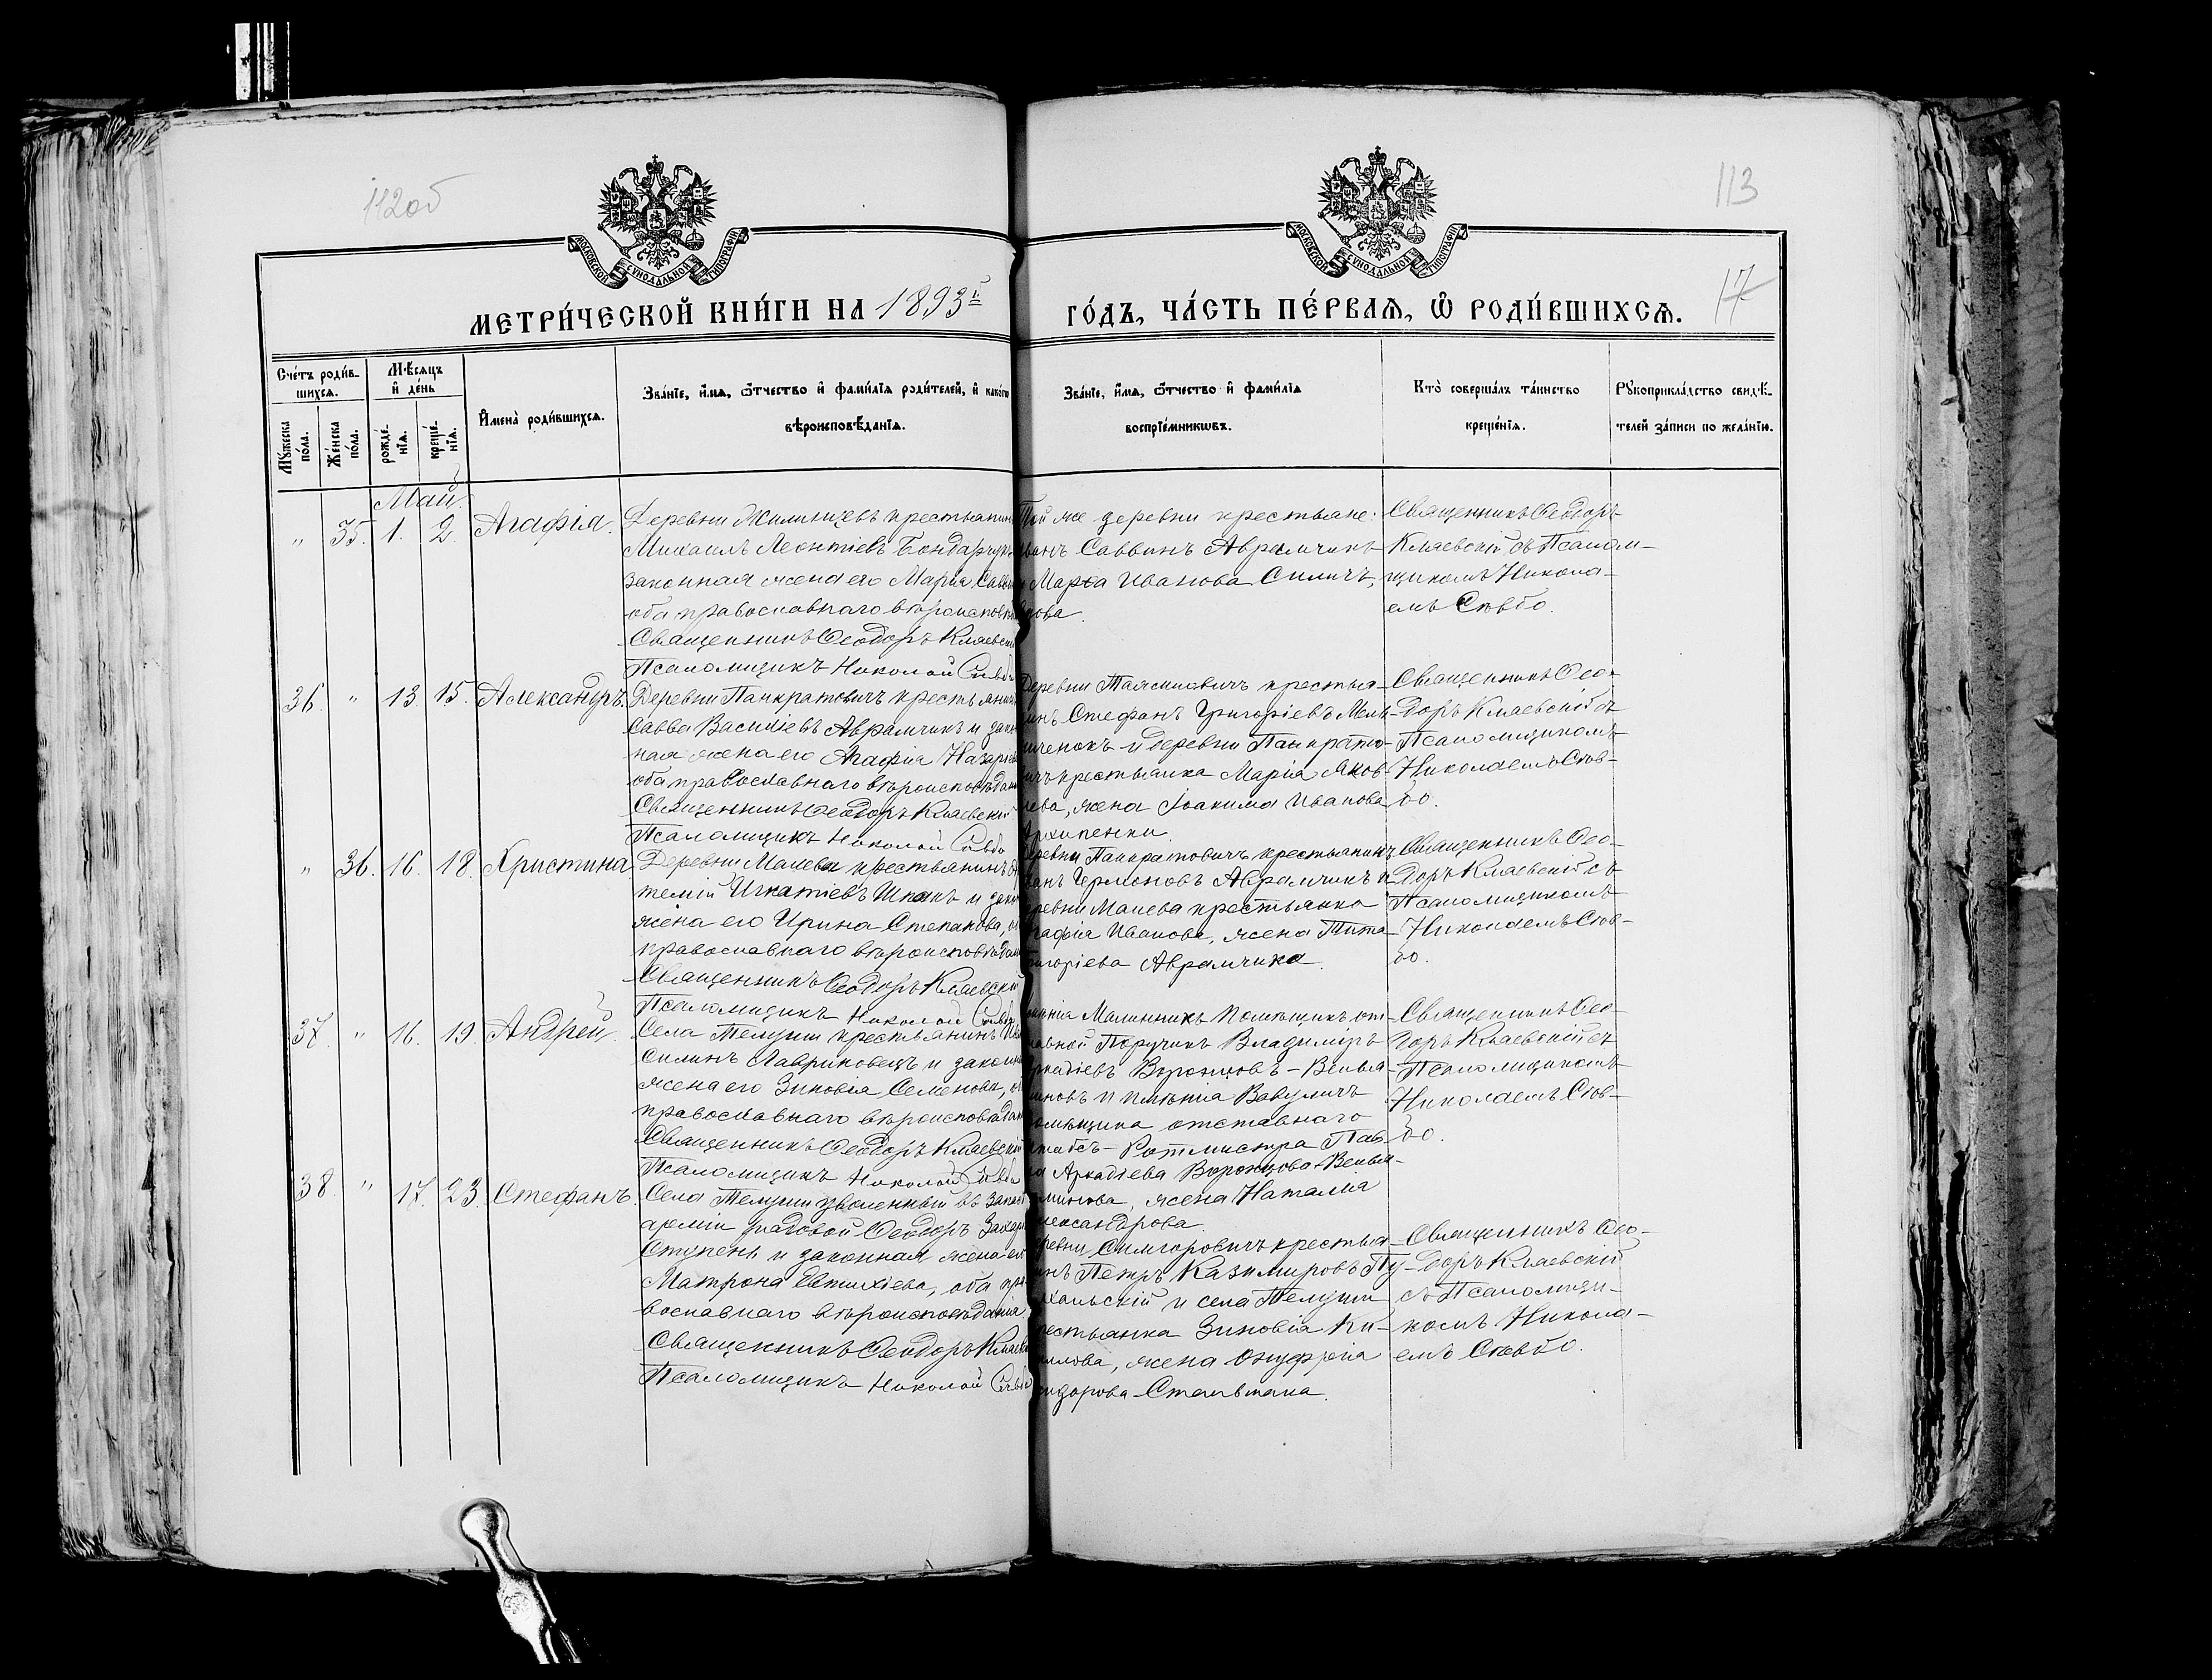 112об
113
МОСКОВСКОЙ СѴНОДАЛЬНОЙ ТИПОГРАФІИ
МОСКОВСКОЙ СѴНОДАЛЬНОЙ ТИПОГРАФІИ
МЕТРИ́ЧЕСКОЙ КНИ́ГИ НА 1893й ГО́ДЪ, ЧА́СТЬ ПЕ́РВАѦ, Ѡ҆ РОДИ́ВШИХСѦ.
17
Сче́тъ роди́в-
шихсѧ.
Мꙋ́жеска по́ла.
Же́нска по́ла.
Мѣ́сѧцъ
и҆ де́нь
рожде́-
нїѧ.
креще́-
нїѧ.
И҆мена̀ роди́вшихсѧ.
Зва́нїе, и҆́мѧ, ѻ҆́тчество и҆ фами́лїѧ роди́телей, и҆ како́гѡ
вѣроисповѣ́данїѧ.
Зва́нїе, и҆́мѧ, ѻ҆́тчество и҆ фами́лїѧ
воспрїе́мникѡвъ.
Кто̀ соверша́лъ та́инство
креще́нїѧ.
Рꙋкоприкла́дство свидѣ́-
телей за́писи по жела́нїю.
Май.
" 35. 1. 2. Агафія.
Деревни Жилинцевъ крестьянин
Михаилъ Леонтіевъ Бондарчукъ
законная жена его Марія Савви
оба православнаго вѣроисповѣ
Священникъ Ѳеодоръ Клаевскі
Псаломщикъ Николай
Той же деревни крестьяне:
Иванъ Саввинъ Аврамчикъ
и Марѳа Иванова Силичъ,
Священникъ Ѳеодоръ
Клаевскій съ Псалом-
щикомъ Никола-
емъ
36. " 13. 15. Александръ.
Деревни Панкратовичъ крестьянинъ
Савва Василіевъ Аврамчикъ и закон
ная жена его Агафія Назаріев
оба православнаго вѣроисповѣдан
Священникъ Ѳеодоръ Клаевскій
Псаломщикъ Николай
Деревни крестья-
нинъ Стефанъ Григоріевъ Мель-
ниченокъ и деревни Панкрато-
вичъ крестьянка Марія Яков-
лева, жена Іоакима Иванова
Архипенки.
Священникъ Ѳео-
доръ Клаевскій съ
Псаломщикомъ
Николаемъ
" 36. 16. 18. Христина
Деревни Малева крестьянинъ
темій Игнатіевъ Шпакъ и закон
жена его Ирина Степанова, о
православнаго вѣроисповѣдан
Священникъ Ѳеодоръ Клаевскій
Псаломщикъ Николай
Деревни Панкратовичъ крестьянинъ
Гермоновъ Аврамчикъ и
деревни Малева крестьянка
Агафія Иванова, жена Тита
Григоріева Аврамчика.
Священникъ Ѳео-
доръ Клаевскій съ
Псаломщикомъ
Николаемъ
37. " 16. 19. Андрей
Села Телуши крестьянинъ
Силинъ Лавриновецъ и законн
жена его Зиновія Семенова, о
православнаго вѣроисповѣдан
Священникъ Ѳеодоръ Клаевскій
Псаломщикъ Николай
имѣнія Малинники Помѣщикъ от-
ставной Поручикъ Владиміръ
Аркадіевъ Воронцовъ-Вельяминовъ и имѣнія Вавуличъ
помѣщика отставнаго
Штабсъ-Ротмистра Пав-
ла Аркадіева Воронцова-Велья-
минова, жена Наталія
Александрова.
Священникъ Ѳео-
доръ Клаевскій съ
Псаломщикомъ
Николаемъ
38. " 17. 23. Стефанъ.
Села Телуши уволенный въ запас
арміи рядовой Ѳеодоръ Захар
Ступень и законная жена его
Матрона Евтихіева, оба пра
вославнаго вѣроисповѣданія.
Священникъ Ѳеодоръ Клаевс
Псаломщикъ Николай
Деревни Симгоровичъ крестья-
нинъ Петръ Казимировъ Пу-
хальскій и села Телуши
крестьянка Зиновія Ки-
рилова, жена Онуфрія
Сидорова Стальмака.
Священникъ Ѳео-
доръ Клаевскій
съ Псаломщи-
комъ Никола-
емъ